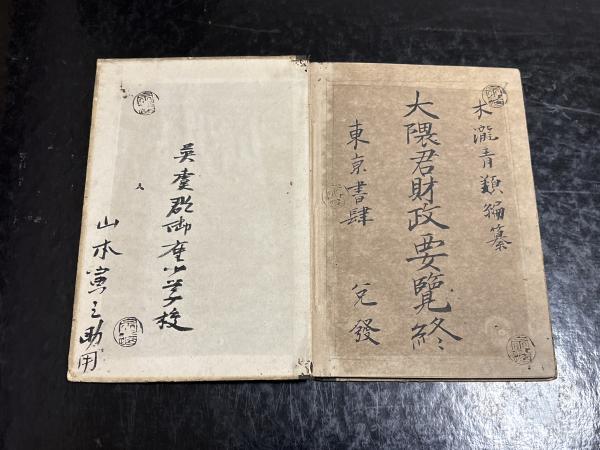 木瀧青類編纂
大隈君財政要覽終
東京書肆 兌發
英虞郡御座小学校
山本寅之助用